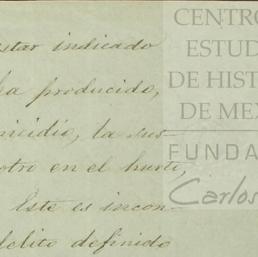 estar indicado
ha producido,
micidio, la sus-
otro en el hurto,
Este es incon-
delito definido
CENTRO
ESTUD
DE HIST
DE MEX
FUNDA
Carlos